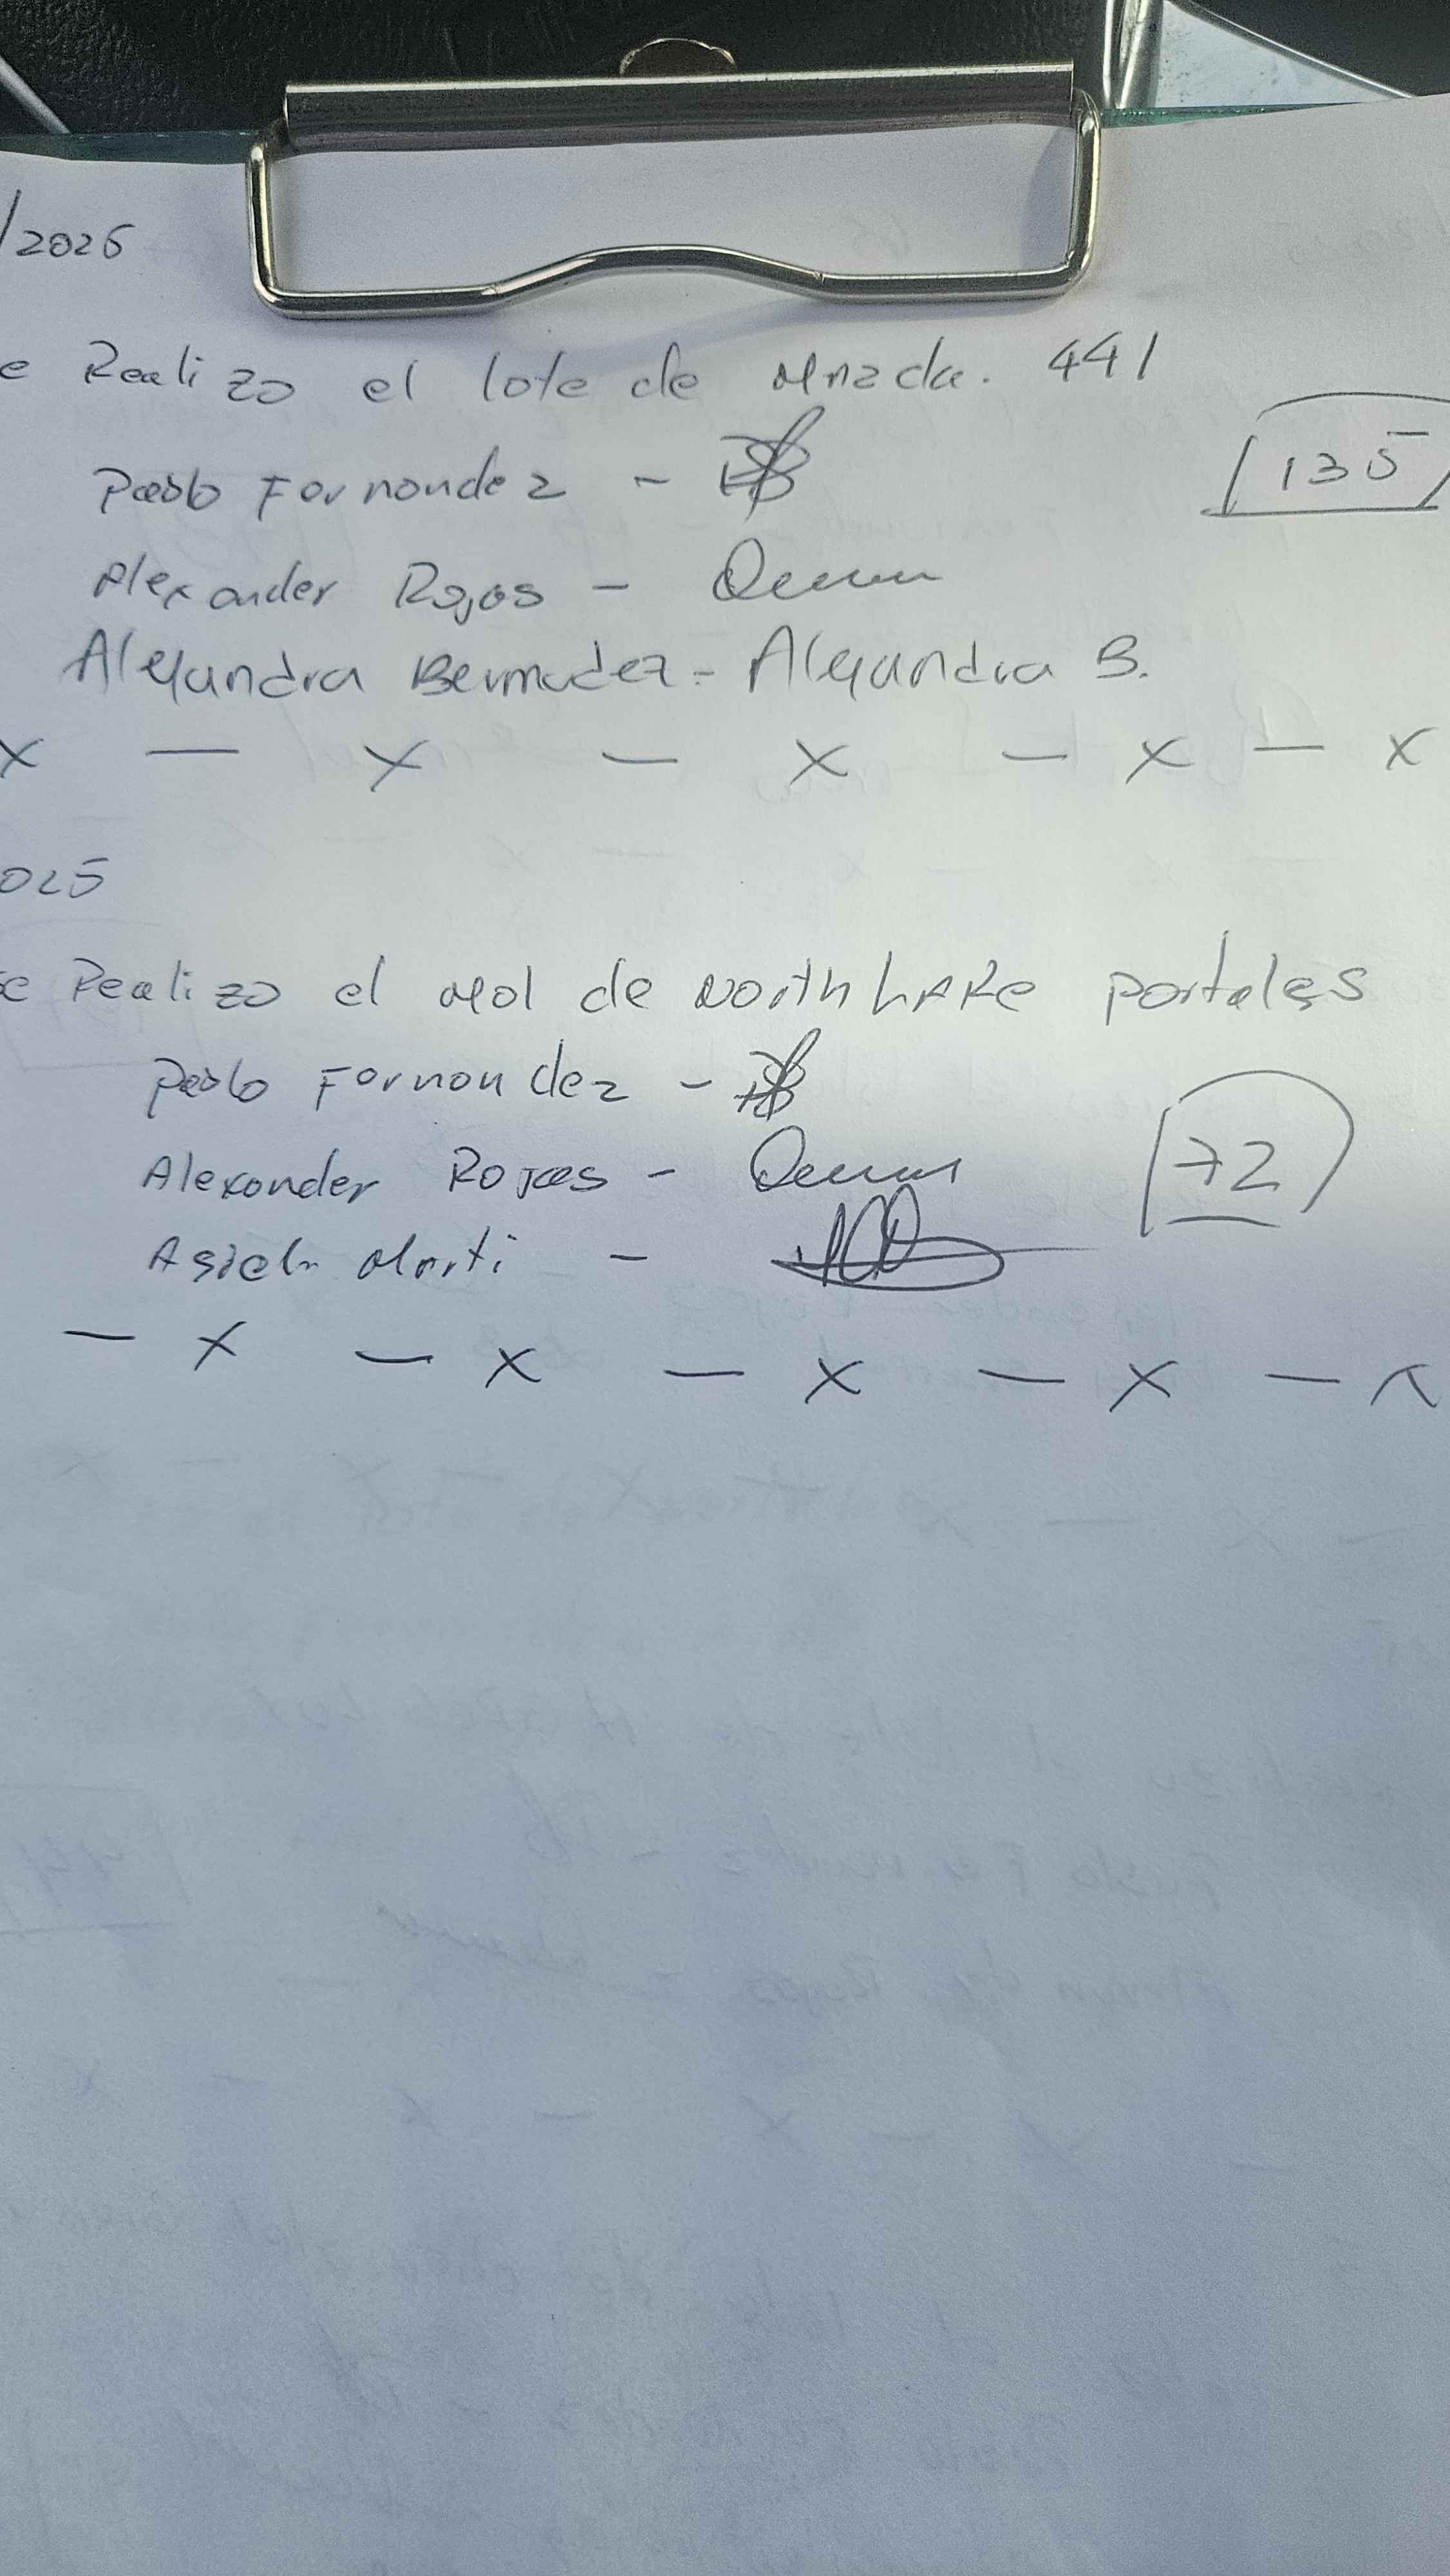 /2025
e Realizo el lote de Mazda. 441
Pablo Fernandez -
135
Alexander Rojas -
Alejandra Bermudez - Alejandra B.
x — x — x — x — x
025
se Realizo el Mol de North Lake portales
Pablo Fernandez -
72
Alexander Rojas -
Asiel Marti -
— x — x — x — x — x